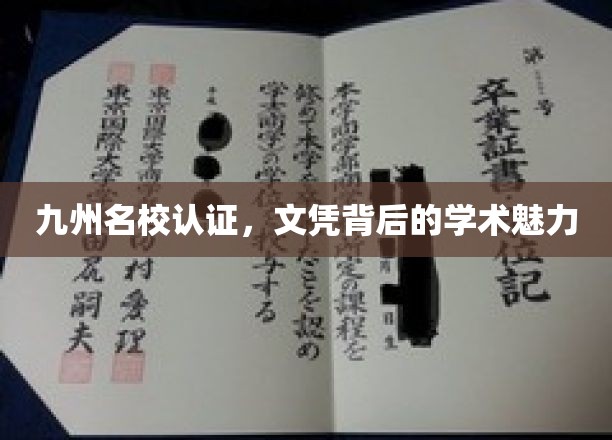 九州名校认证，文凭背后的学术魅力
第 号
卒業証書・ 位記
月 日生
本学商学部商学 所定の課程を
修めて本学を たことを認め
学士(商学)の学位を授与する
平成
東京国際大学商学 村愛理
東京国際大学学 田尻嗣夫